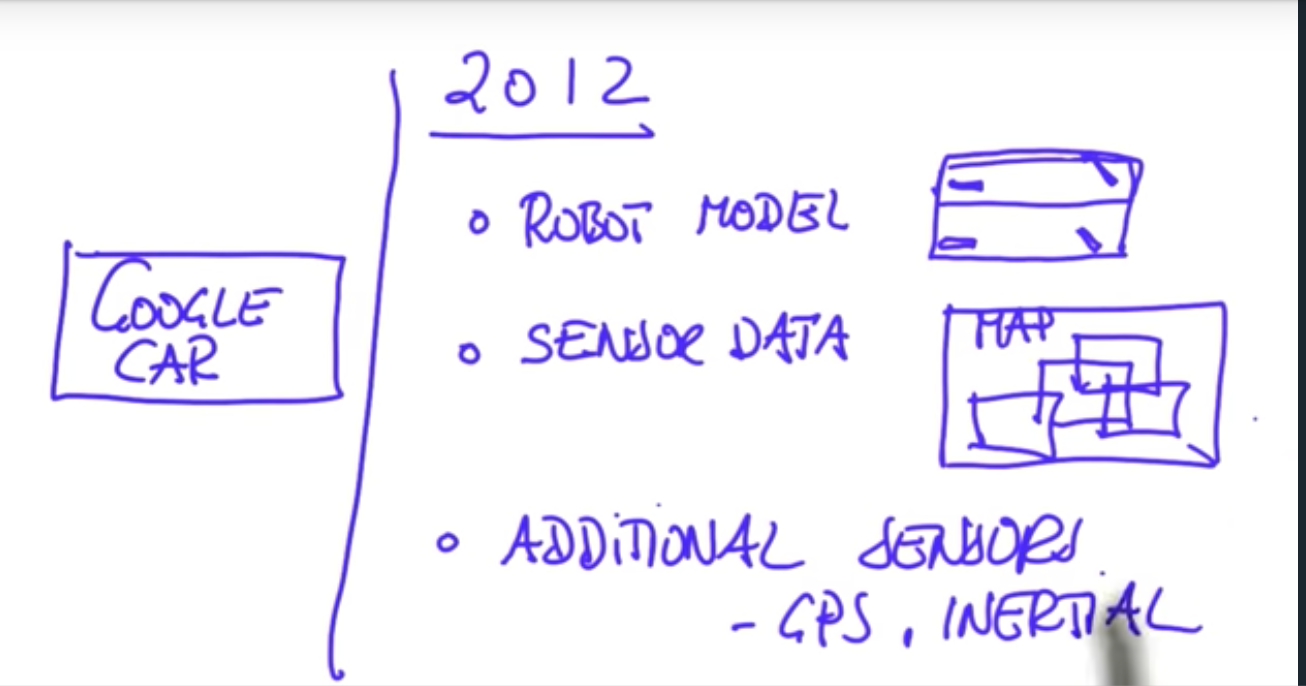 2012
GOOGLE
CAR
ROBOT MODEL
SENSOR DATA
MAP
ADDITIONAL SENSORS
- GPS, INERTIAL